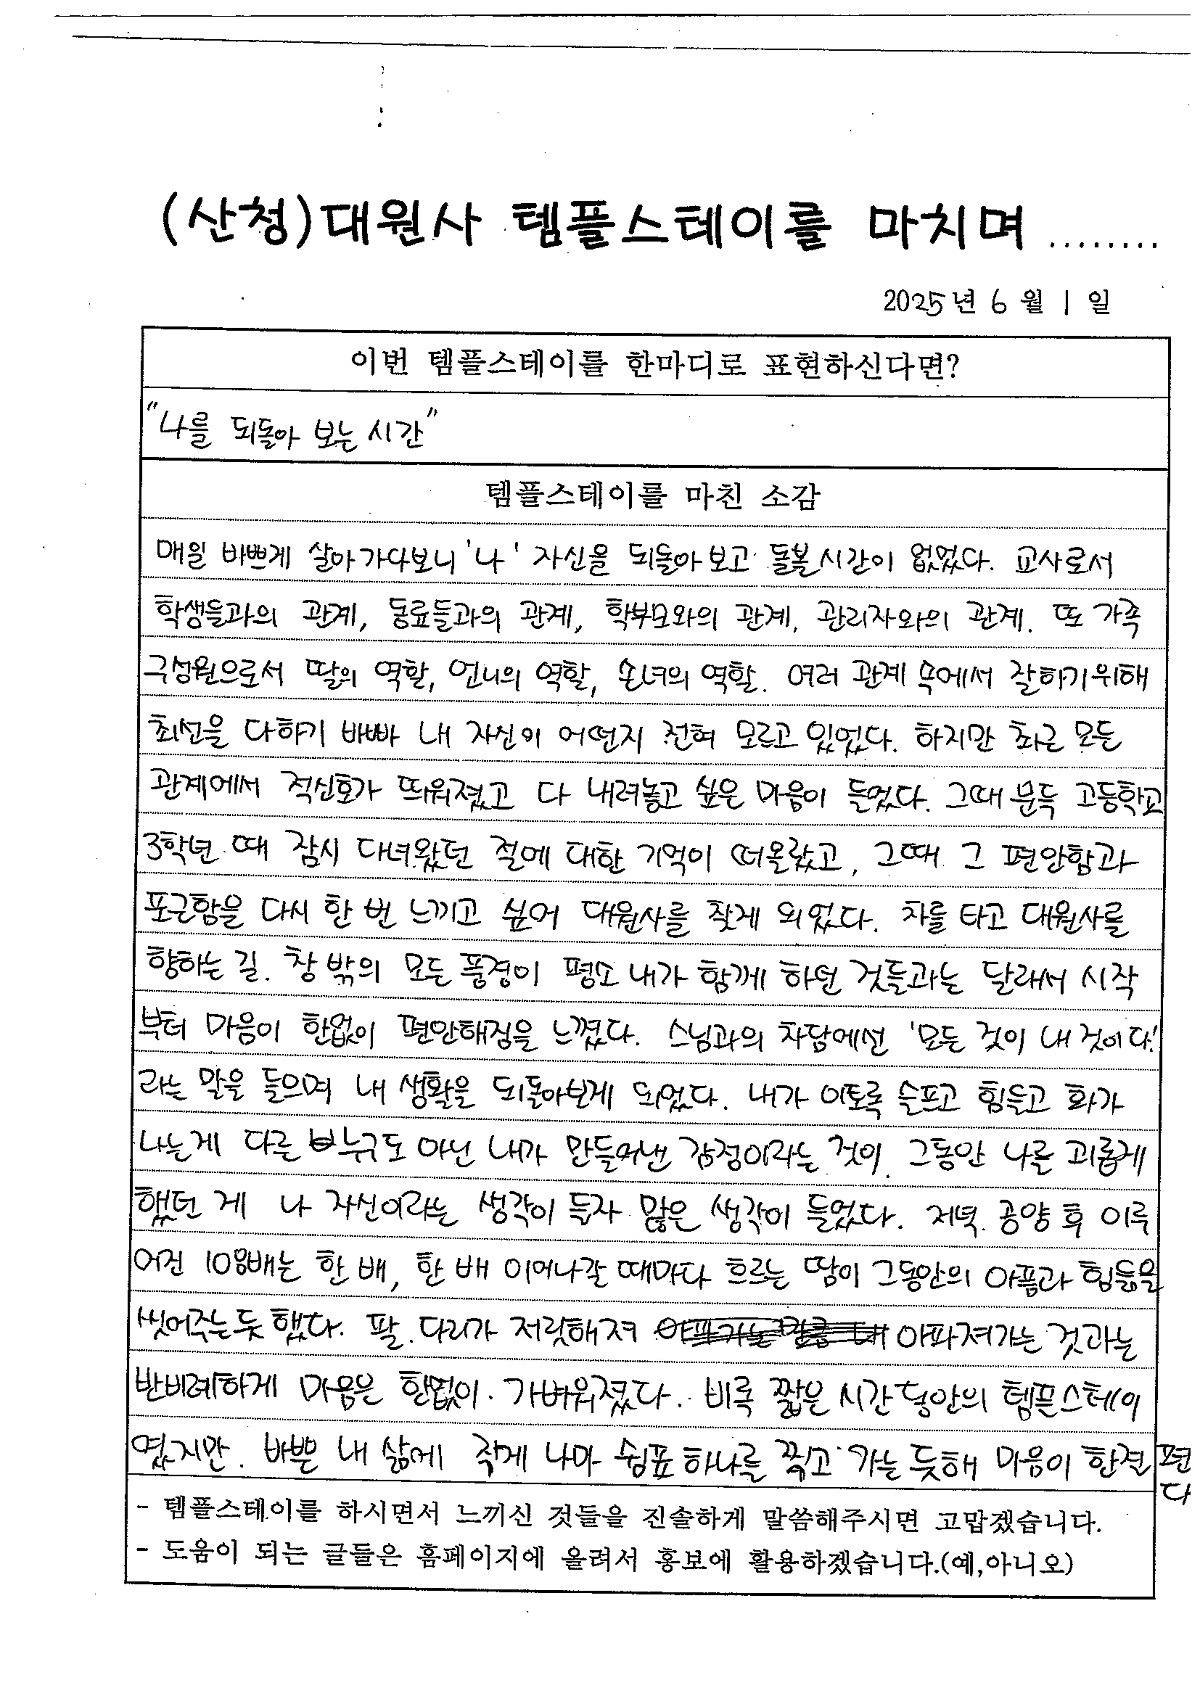 (산청)대원사 템플스테이를 마치며........
2025년 6월 1일
이번 템플스테이를 한마디로 표현하신다면?
"나를 되돌아 보는 시간"
템플스테이를 마친 소감
매일 바쁘게 살아가다보니 '나' 자신을 되돌아보고 돌볼시간이 없었다. 교사로서
학생들과의 관계, 동료들과의 관계, 학부모와의 관계, 관리자와의 관계. 또 가족
구성원으로서 딸의 역할, 언니의 역할, 손녀의 역할. 여러 관계 속에서 잘하기위해
최선을 다하기 바빠 내 자신이 어떤지 전혀 모르고 있었다. 하지만 최근 모든
관계에서 적신호가 띄워졌고 다 내려놓고 싶은 마음이 들었다. 그때 문득 고등학교
3학년 때 잠시 다녀왔던 절에 대한 기억이 떠올랐고, 그때 그 편안함과
포근함을 다시 한 번 느끼고 싶어 대원사를 찾게 되었다. 차를 타고 대원사를
향하는 길. 창 밖의 모든 풍경이 평소 내가 함께 하던 것들과는 달라서 시작
부터 마음이 한없이 편안해짐을 느꼈다. 스님과의 차담에선 '모든 것이 내 것이다!'
라는 말을 들으며 내 생활을 되돌아보게 되었다. 내가 이토록 슬프고 힘들고 화가
나는게 다른 누구도 아닌 내가 만들어낸 감정이라는 것이, 그동안 나를 괴롭게
했던 게 나 자신이라는 생각이 들자 많은 생각이 들었다. 저녁 공양 후 이루
어진 108배는 한 배, 한 배 이어나갈 때마다 흐르는 땀이 그동안의 아픔과 힘듦을
씻어주는듯 했다. 팔, 다리가 저릿해져 아파져가는 것과는
반비례하게 마음은 한없이 가벼워졌다. 비록 짧은 시간동안의 템플스테이
였지만, 바쁜 내 삶에 작게 나마 쉼표 하나를 찍고 가는 듯해 마음이 한결 편
다
- 템플스테이를 하시면서 느끼신 것들을 진솔하게 말씀해주시면 고맙겠습니다.
- 도움이 되는 글들은 홈페이지에 올려서 홍보에 활용하겠습니다.(예,아니오)